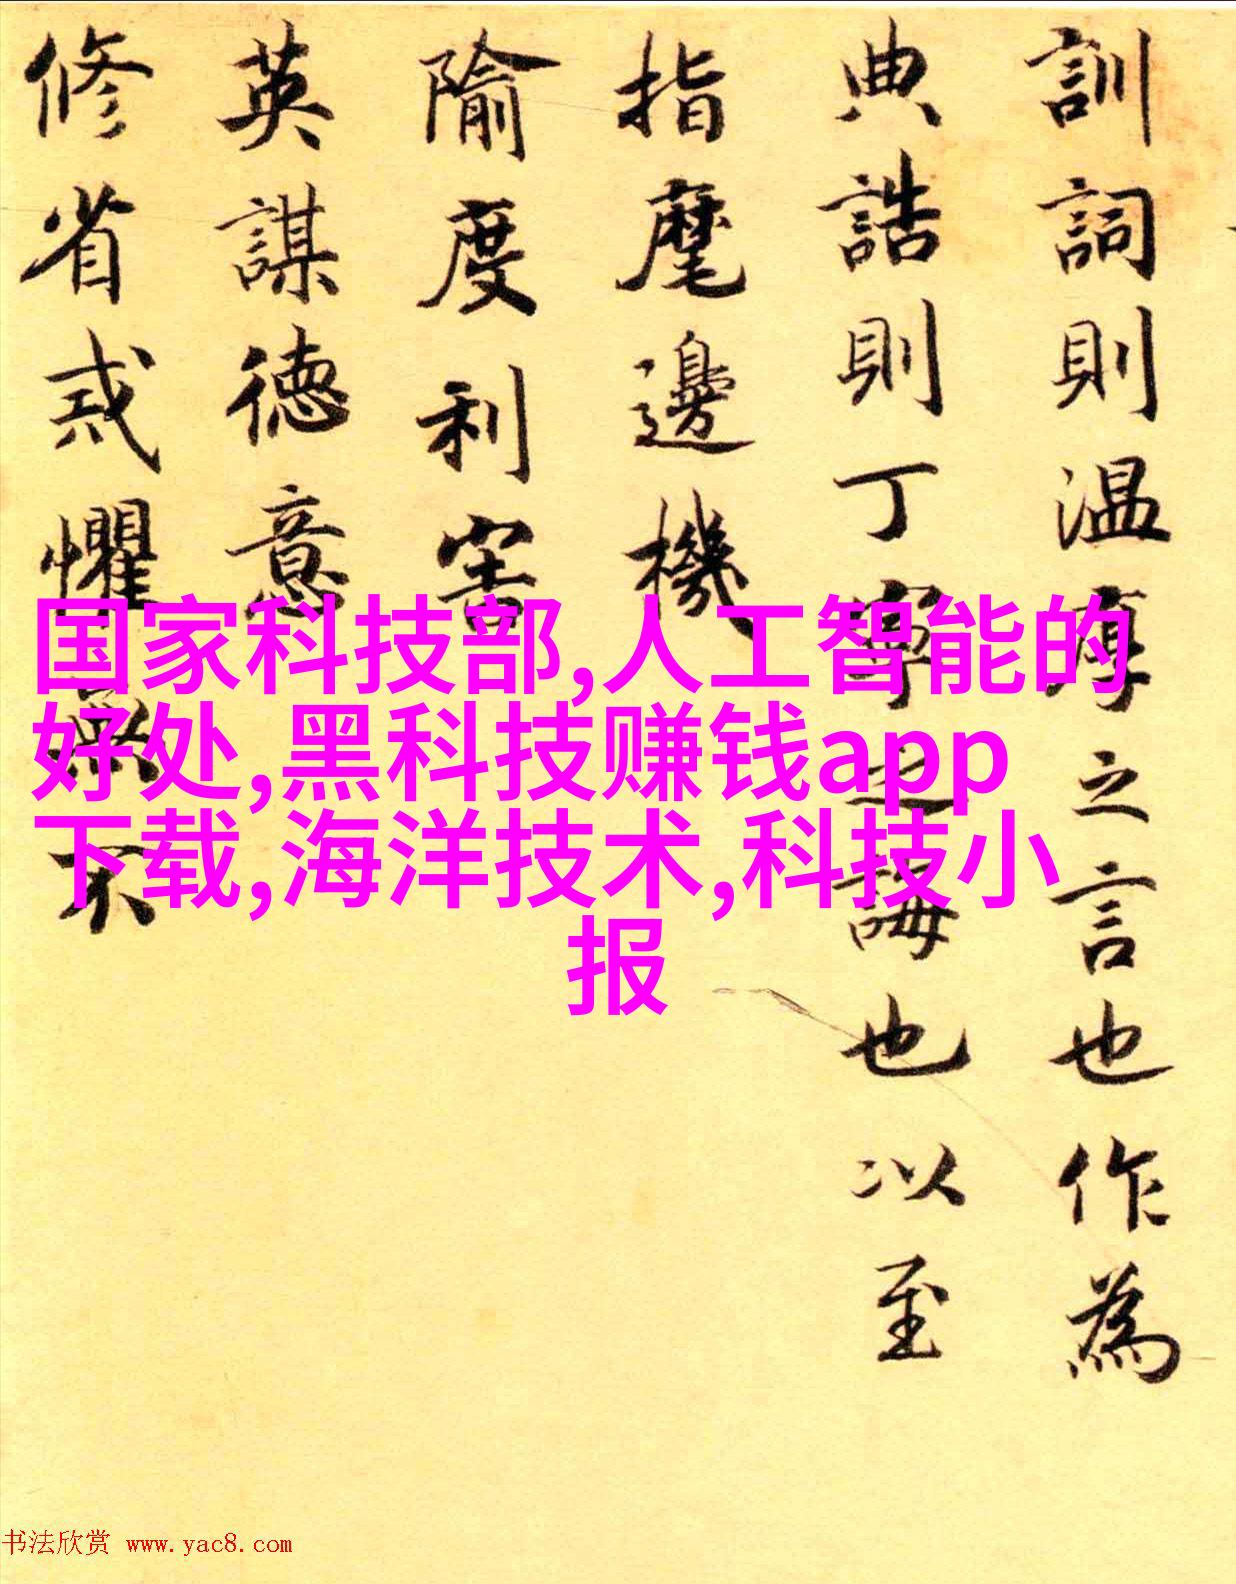 訓詞則温厚之言也作為
典誥則丁寧之誨也以至
指麾邊機
隃度利害
英謀徳意
修省戒懼無不
国家科技部,人工智能的
好处,黑科技赚钱app
下载,海洋技术,科技小
报
书法欣赏 www.yac8.com